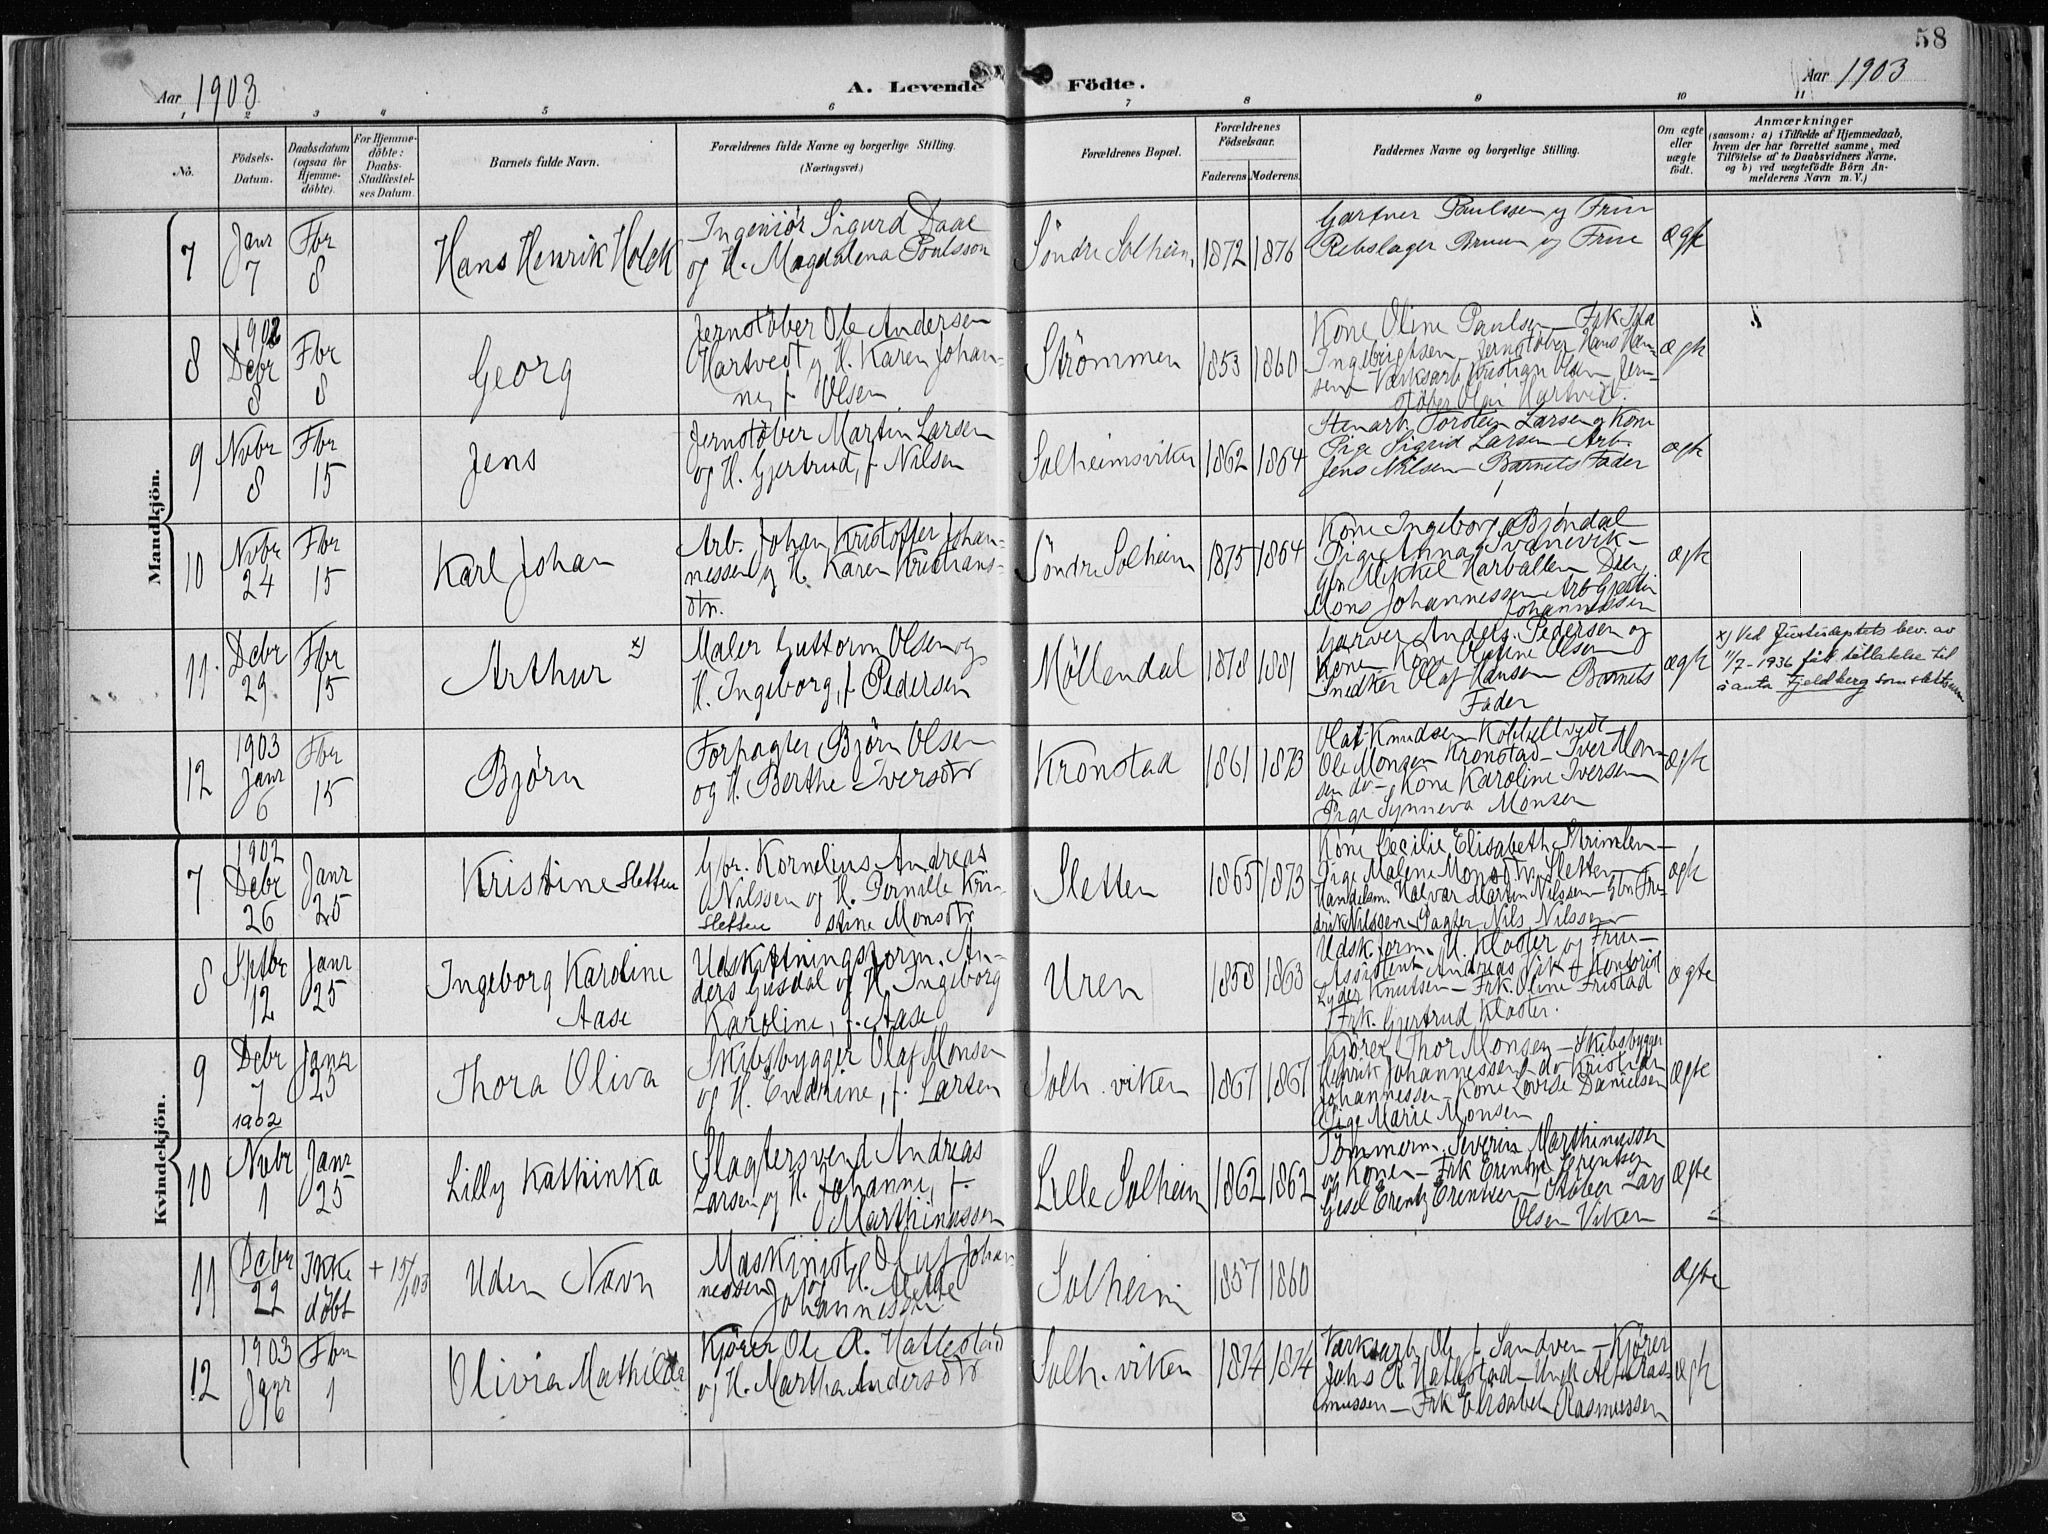 58
Aar 1903
A. Levende Födte.
Aar 1903
1 2 3 4 5 6 7 8 9 10 11
No.
Födsels-Datum.
Daabsdatum (ogsaa for Hjemme-döbte).
For Hjemme-döbte: Daabs-Stadfæstel-ses Datum.
Barnets fulde Navn.
Forældrenes fulde Navne og borgerlige Stilling.
(Næringsvei.)
Forældrenes Bopæl.
Forældrenes Födselsaar.
Faderens Moderens.
Faddernes Navne og borgerlige Stilling.
Om ægte eller uægte födt.
Anmærkninger
(saasom: a) i Tilfælde af Hjemmedaab,
hvem der har forrettet samme, med
Tilföielse af to Daabsvidners Navne,
og b) ved uægtefödte Börn An-
melderens Navn m. V.)
Mandkjön.
7 Janr 7 Fbr 8 Hans Henrik Holck
Ingeniör Sigurd Daae
og H. Magdalena Poulsson
Söndre Solheim 1872 1876
Gartner Paulssen og Frue
Rebslager Bruun og Frue
ægte
8 1902 Debr 8 Fbr 8 Georg
Jernstöber Ole Andersen
Hartvedt og H. Karen Johan-
ne, f. Olsen
Strömmen 1853 1860
Kone Oline Paulsen – Frk
Ingebrigtsen – Jernstöber Hans Han-
sen – Værksarb. Kristian Olsen Jern-
stöber Olai Hartvedt.
ægte
9 Novbr 8 Fbr 15 Jens
Jernstöber Martin Larsen
og H. Gjertrud, f. Nilsen
Solheimsviken 1862 1864
Stenarb. Torstein Larsen og Kone
Pige Sigrid Larsen – Arb.
Jens Nilsen – Barnets Fader
ægte
10 Novbr 24 Fbr 15 Karl Johan
Arb. Johan Kristoffer Johan-
nessen og H. Karen Kristians-
dtr.
Söndre Solheim 1875 1864
Kone Ingeborg Bjöndal
Pige Anna Svanevik –
Gbr Mikkel
Mons Johannessen Arb
Johannessen
ægte
11. Debr 29. Fbr 15 Arthur x)
Maler Guttorm Olsen og
H. Ingeborg, f. Pedersen
Möllendal 1878 1881
Garver Anders Pedersen og
Kone – Kone Olsen
Snedker Olaf Hansen – Barnets
Fader
ægte
x) Ved Justisdeptets bev. av
11/7-1936 fått tillatelse til
å anta Fjeldberg som slektsnavn
12 1903 Janr 6 Fbr 15 Björn
Forpagter Björn Olsen
og H. Berthe Iversdtr
Kronstad 1861 1873
Olai Knudsen
Ole Monsen Kronstad – Iver Mon-
sen do. – Kone Karoline Iversen
Pige Synneva Monsen
ægte
Kvindekjön.
7 1902 Debr 26 Janr 25 Kristine Sletten
Gbr. Kornelius Andreas
Nilssen og H. Pernille Kri-
Sletten stine Monsdtr
Sletten 1865 1873
Kone Cecilie Elisabeth
Pige Malene Monsdtr Sletten –
Handelsm. Halvar Martin Nilssen – Gbr Fre-
drik Nilssen – Pagter Nils Nilssen
ægte
8 Sptbr 12 Janr 25 Ingeborg Karoline
Aase
Udskiftningsform. An-
ders Gusdal og H. Ingeborg
Karoline, f. Aase
Uren 1858 1863
Udsk. form. H. Kloster og Frue –
Assistent Andreas Vik – Kontorist
Lyder Knutsen – Frk. Oline Fristad
Frk. Gjertrud Kloster.
ægte
9 Debr 7 Janr 25 Thora Oliva
1902
Skibsbygger Olaf Monsen
og H. Endrine, f. Larsen
Solh. viken 1867 1867
Kjörer Thor Monsen – Skibsbygger
Henrik Johannessen do Kristian
Johannessen – Kone Lovise Danielsen
Pige Marie Monsen
ægte
10 Novbr 1 Janr 25 Lilly Kathinka
Slagtersvend Andreas
Larsen og H. Johanne, f.
Marthinussen
Lille Solheim 1862 1862
Tömmerm. Severin Marthinussen
og Kone – Frk Erentse Erentsen
Gesel Erentz Erentsen – Stöber Lars
Olsen Viken
ægte
11 Debr 22 Ikke döbt + 15/1 03 Uden Navn
Maskinist Oluf Johan
nessen og H.
Johannessen
Solheim 1857 1860
ægte
12 1903 Janr 6 Fbr 1 Olivia Mathilde
Kjörer Ole R. Hattestad
og H. Martha Andersdtr
Solh. viken 1874 1874
Værksarb. Ole J. Sandven – Kjörer
Johs R. Hattestad – Ungk Alf Ras-
mussen – Frk Elisabet Rasmussen
ægte